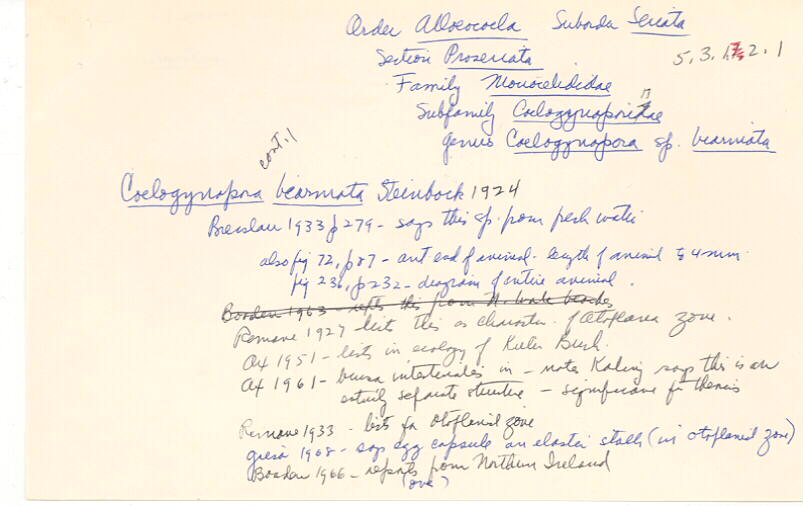 Order Alloeocoela Suborder Seriata
Section Proseriata 5.3. 2.1
Family Monocelididae
Subfamily Coelogynoporinae
genus Coelogynopora sp. biarmata
cont.
Coelogynopora biarmata Steinbock 1924
Bresslau 1933 p279 - says this sp. from fresh water
also fig 72, p87 - ant end of animal - length of animal to 4mm
fig 236, p232 - diagram of entire animal.
Boaden 1963 - repts this from N. Wales beaches
Remane 1927 lists this as character. of Otoplanea zone.
Ax 1951 - lists in ecology of Kieler Bush.
Ax 1961 - bursa intestinalis in - notes Karling says this is an
entirely separate structure - significance for thesis
Remane 1933 - lists for Otoplanid zone
giesa 1968 - says egg capsule on elastic stalk (in otoplanid zone)
Boaden 1966 - reports from Northern Ireland
(one)